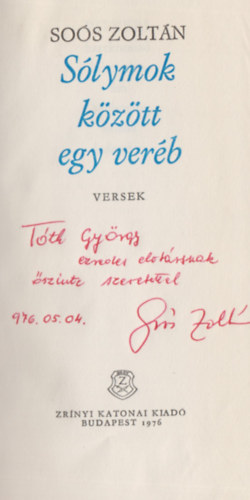 SOÓS ZOLTÁN
Sólymok
között
egy veréb
VERSEK
Tóth György
ezredes elvtársnak
őszinte szeretettel
976.05.04.
Soós Zoltán
ZRÍNYI KATONAI KIADÓ
BUDAPEST 1976